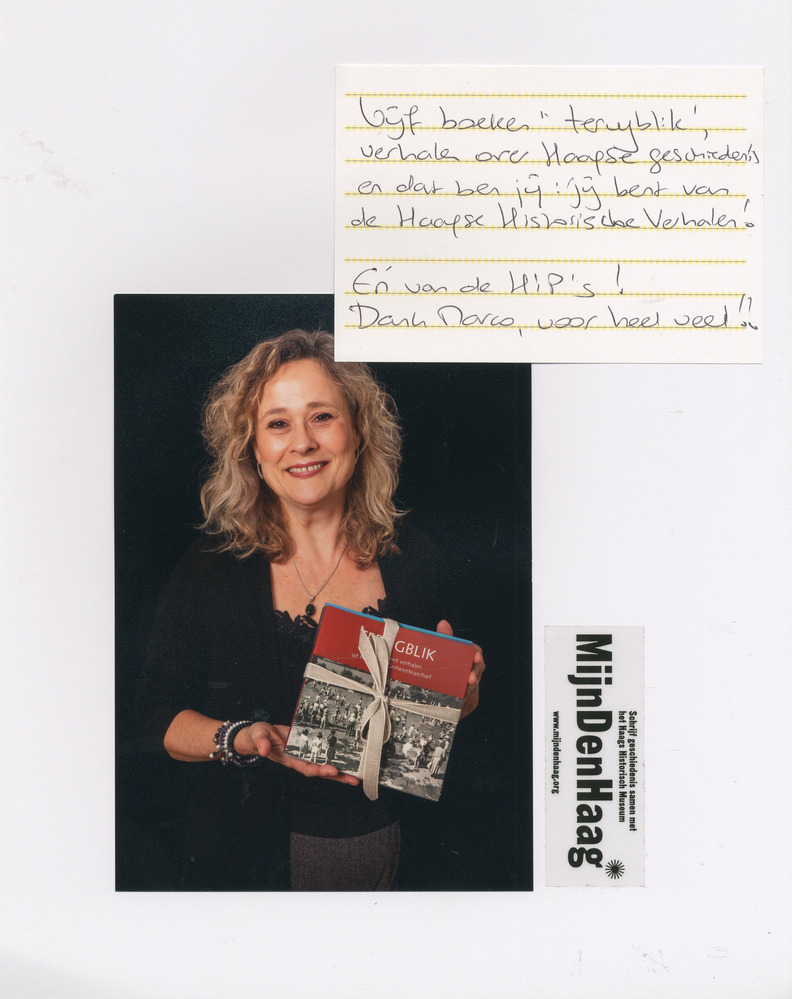 Vijf boeken "terugblik',
verhalen over Haagse geschiedenis
en dat ben jij: jij bent van
de Haagse Historische Verhalen!
En van de HIP's!
Dank Marco, voor heel veel!!
GBLIK
verhalen
emeentearchief
MijnDenHaag
Schrijf geschiedenis samen met
het Haags Historisch Museum
www.mijndenhaag.org